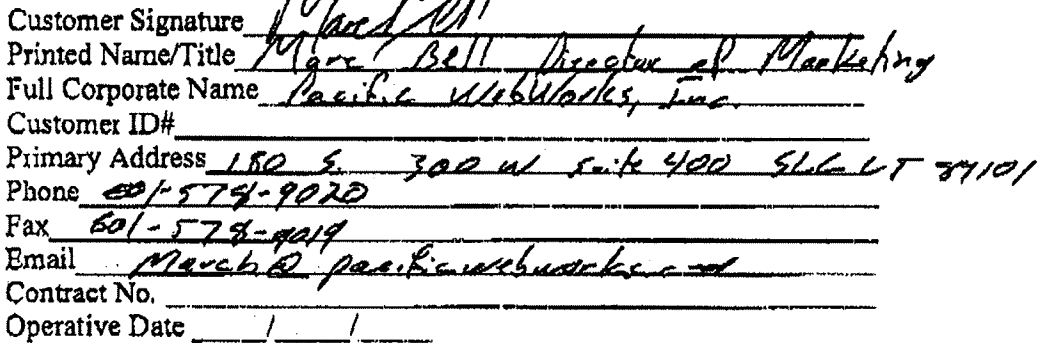 Customer Signature
Printed Name/Title Marc Bell Director of Marketing
Full Corporate Name Pacific WebWorks, Inc.
Customer ID#
Primary Address 180 S. 300 W Suite 400 SLC UT 84101
Phone 801-578-9020
Fax 801-578-9019
Email March@pacificwebworks.com
Contract No.
Operative Date / /